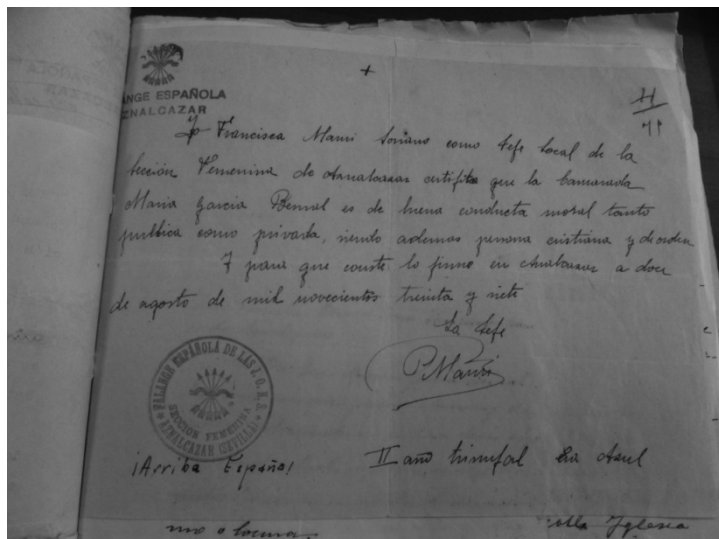 ANGE ESPAÑOLA
ZNALCAZAR
+
H
Yo Francisca Mauri Soriano como Jefe Local de la
Sección Femenina de Aznalcazar certifico que la Camarada
Maria Garcia Bernal es de buena conducta moral tanto
publica como privada, siendo ademas persona cristiana y de orden
Y para que conste lo firmo en Aznalcazar a doce
de agosto de mil novecientos treinta y siete
La Jefe
P. Mauri
FALANGE ESPAÑOLA DE LAS J.O.N.S.
SECCION FEMENINA
AZNALCAZAR (SEVILLA)
¡Arriba España!
II año triunfal Era Azul
Iglesia